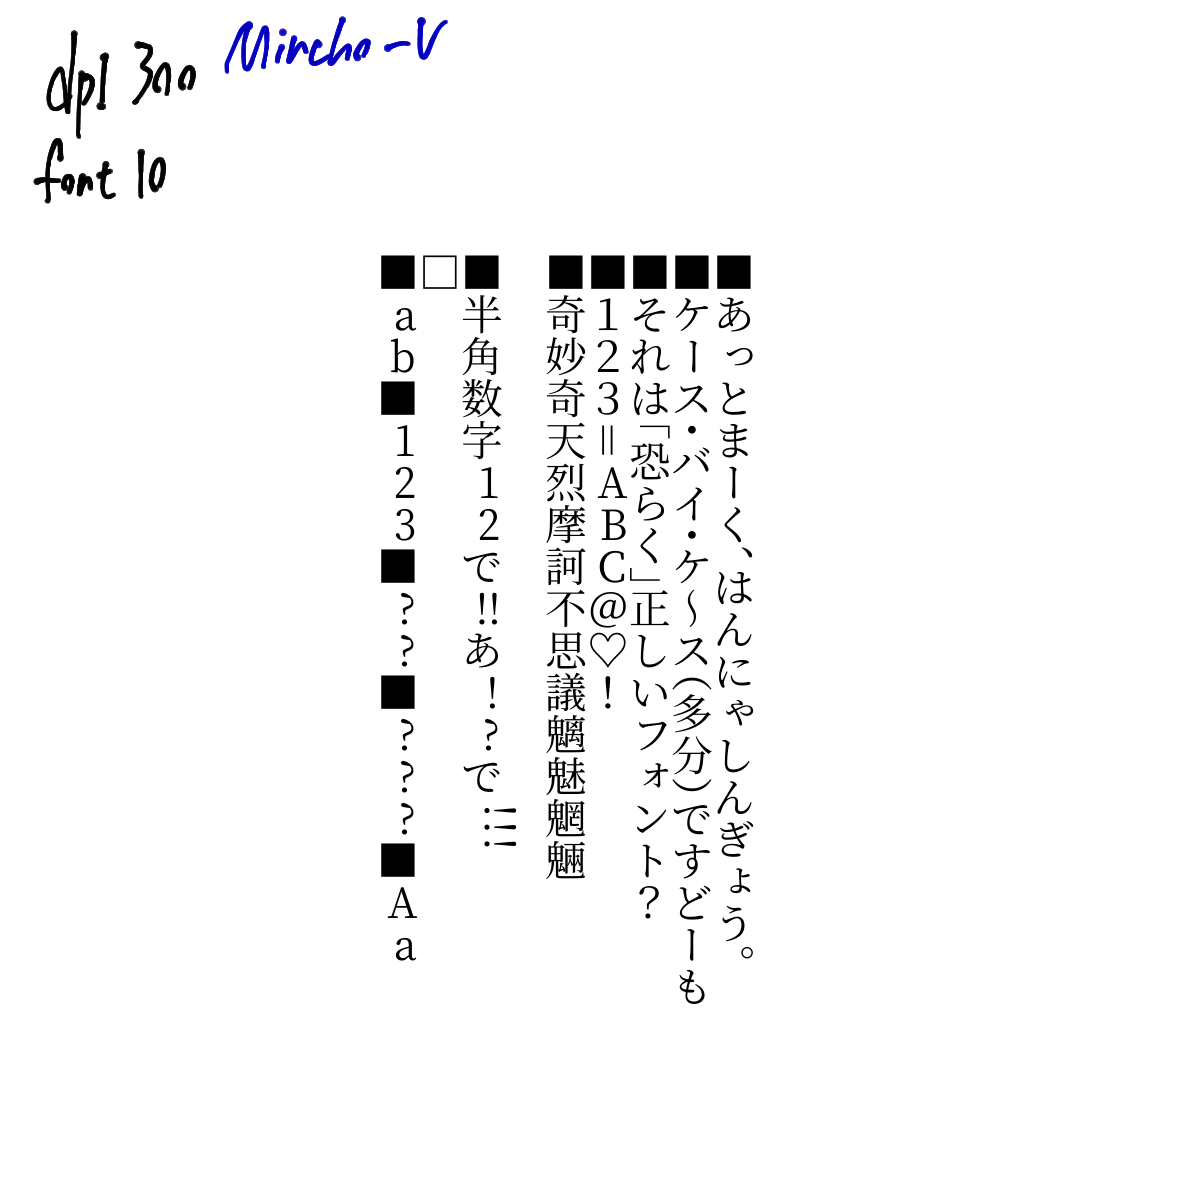 dpI 300
Mincho-V
font 10
■あっとまーく、はんにゃしんぎょう。
■ケース・バイ・ケ～ス（多分）ですどーも
■それは「恐らく」正しいフォント？
■１２３＝ＡＢＣ＠♡！
■奇妙奇天烈摩訶不思議魑魅魍魎
■半角数字12で!!あ!?で!!!
□
■ab■123■??■???■Aa